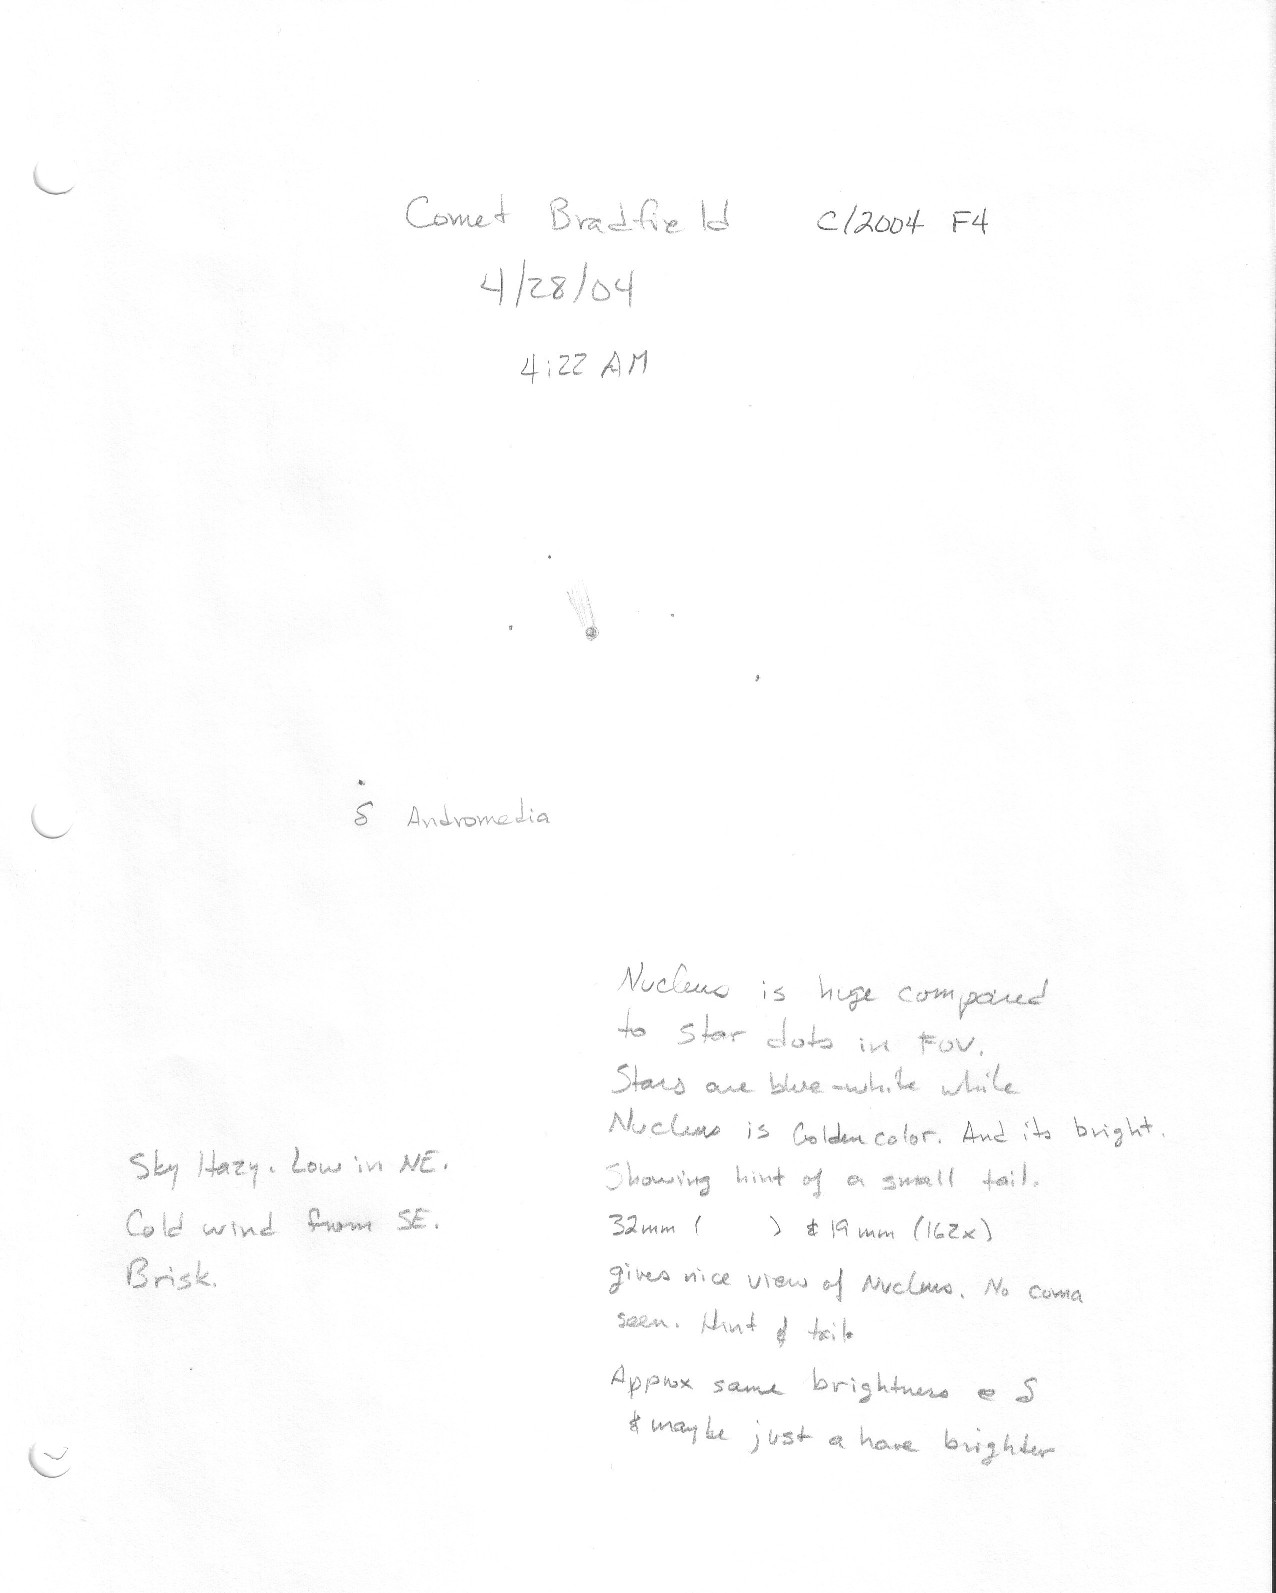 Comet Bradfield C/2004 F4
4/28/04
4:22 AM
δ Andromedia
Nucleus is huge compared
to star dots in FOV.
Stars are blue-white while
Nucleus is Golden color. And its bright.
Showing hint of a small tail.
32mm ( ) & 19mm (162x)
gives nice view of Nucleus. No coma
seen. Hint of tail
Approx same brightness @ δ
& maybe just a hare brighter
Sky Hazy. Low in NE.
Cold wind from SE.
Brisk.